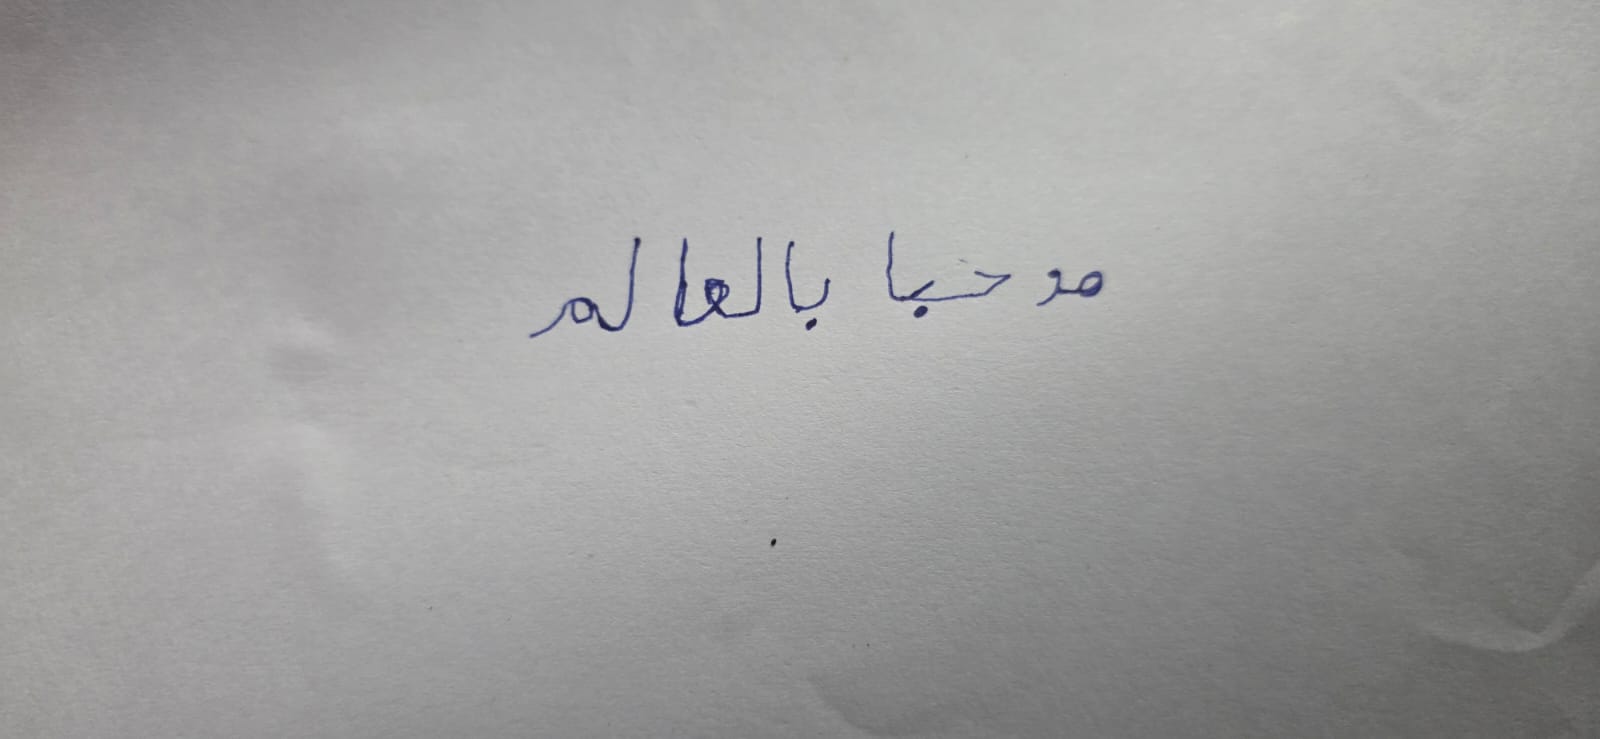 مرحبا بالعالم